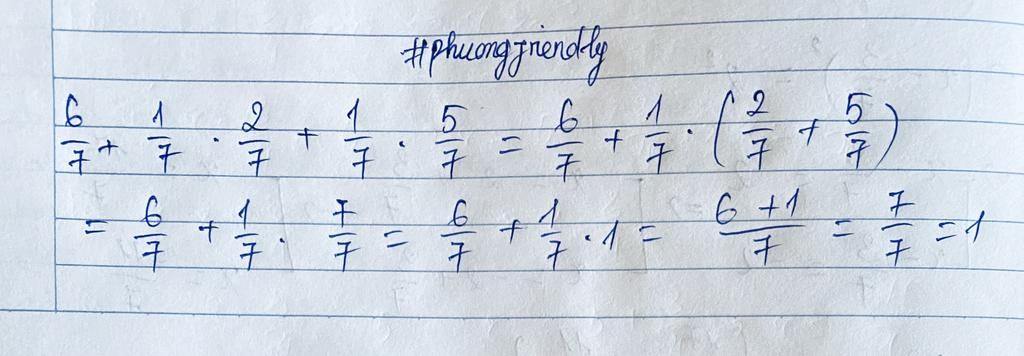 #phuongfriendly
6/7 + 1/7 . 2/7 + 1/7 . 5/7 = 6/7 + 1/7 . (2/7 + 5/7)
= 6/7 + 1/7 . 7/7 = 6/7 + 1/7 . 1 = 6 + 1/7 = 7/7 = 1